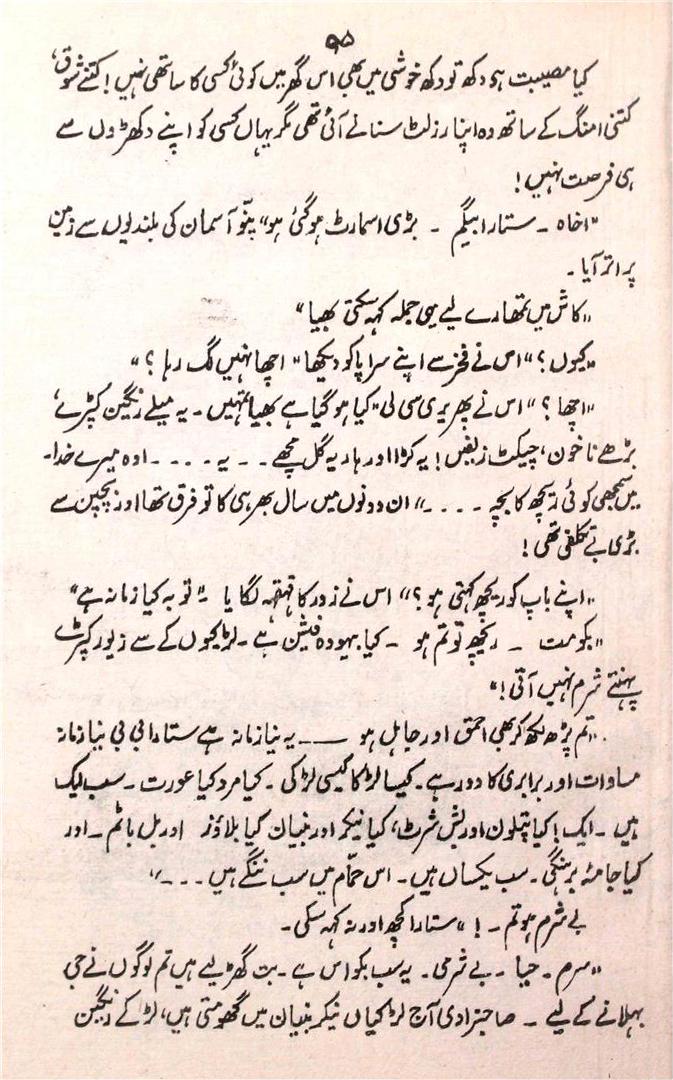 ۹۵
کیا مصیبت ہو دکھ تو دکھ خوشی میں بھی اس گھر میں کوئی کسی کا ساتھی نہیں! کتنے شوق،
کتنی امنگ کے ساتھ وہ اپنا رزلٹ سنانے آئی تھی مگر یہاں کسی کو اپنے دکھڑوں سے
ہی فرصت نہیں!
"اخاہ ۔ ستارا بیگم ۔ بڑی اسمارٹ ہو گئی ہو" پتّو آسمان کی بلندیوں سے زمین
پر اتر آیا۔
"کاش میں تمھارے لیے یہی جملہ کہہ سکتی بھیا"
"کیوں؟" اس نے فخر سے اپنے سراپا کو دیکھا" اچھا نہیں لگ رہا؟"
"اچھا؟" اس نے پھریری سی لی "کیا ہو گیا ہے بھیا تمہیں۔ یہ میلے رنگین کپڑے،
بڑھے ناخون، چیکٹ زلفیں! یہ کڑا اور ہار یہ گل مچھے ۔۔ یہ ۔۔۔۔ اوہ میرے خدا۔
میں سمجھی کوئی ریچھ کا بچہ ۔۔۔۔" ان دونوں میں سال بھر ہی کا تو فرق تھا اور بچپن سے
بڑی بے تکلفی تھی!
"اپنے باپ کو ریچھ کہتی ہو؟" اس نے زور کا قہقہہ لگایا ۔" توبہ کیا زمانہ ہے"
"بکومت ۔ ریچھ تو تم ہو ۔ کیا بیہودہ فیشن ہے۔ لڑکیوں کے سے زیور کپڑے
پہنتے شرم نہیں آتی!"
"تم پڑھ لکھ کر بھی احمق اور جاہل ہو ۔۔۔ یہ نیا زمانہ ہے ستارا بی بی نیا زمانہ
مساوات اور برابری کا دور ہے۔ کیسا لڑکا کیسی لڑکی۔ کیا مرد کیا عورت۔ سب ایک
ہیں ۔ ایک! کیا پتلون اور بش شرٹ، کیا نیکر اور بنیان کیا بلاؤز اور بل باٹم ۔ اور
کیا جامۂ برہنگی۔ سب یکساں ہیں۔ اس حمّام میں سب ننگے ہیں ۔۔۔"
بے شرم ہو تم ۔!" ستارا کچھ اور نہ کہہ سکی۔
"سرم ۔ حیا ۔ بے شرمی۔ یہ سب بکواس ہے۔ بت گھڑ لیے ہیں تم لوگوں نے جی
بہلانے کے لیے ۔ صاحبزادی آج لڑکیاں نیکر بنیان میں گھومتی ہیں، لڑکے رنگین